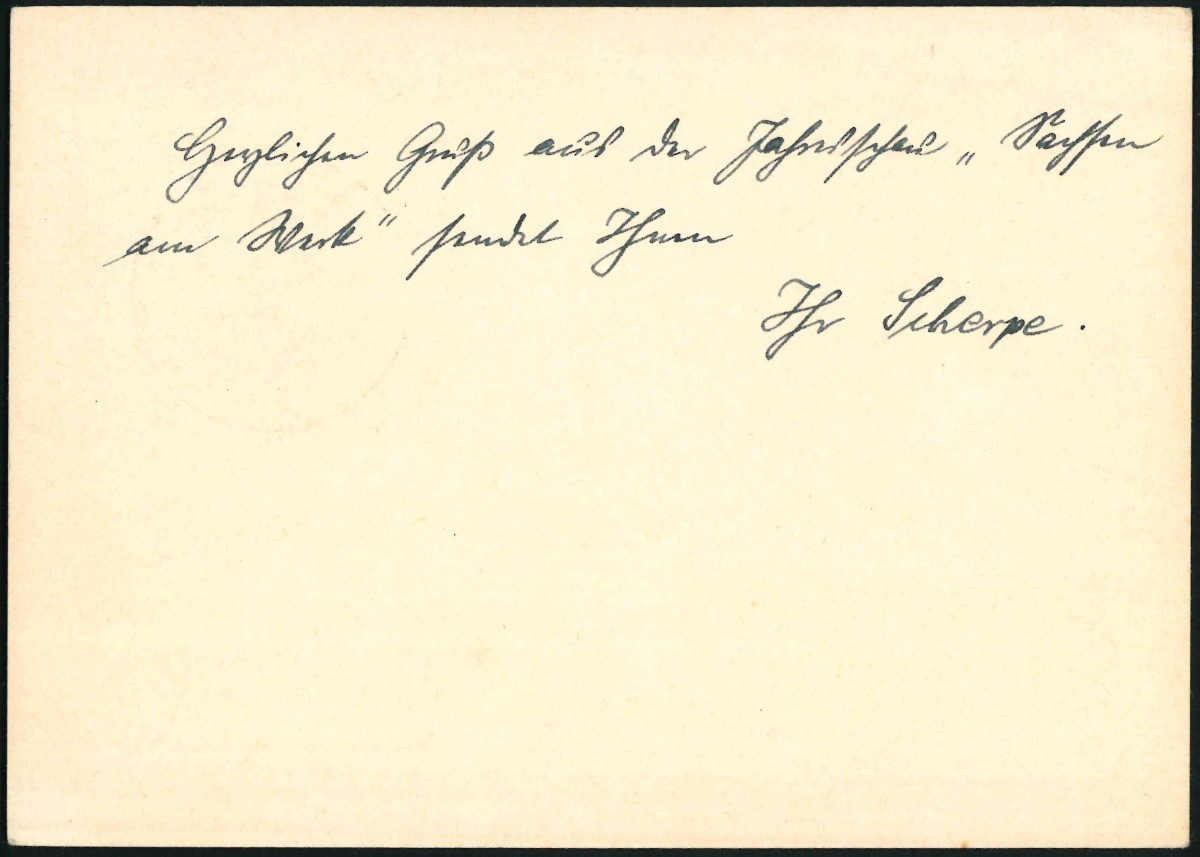 Herzlichen Gruß aus der Jahresschau „Sachsen
am Werk" sendet Ihnen
Ihr Scherpe.